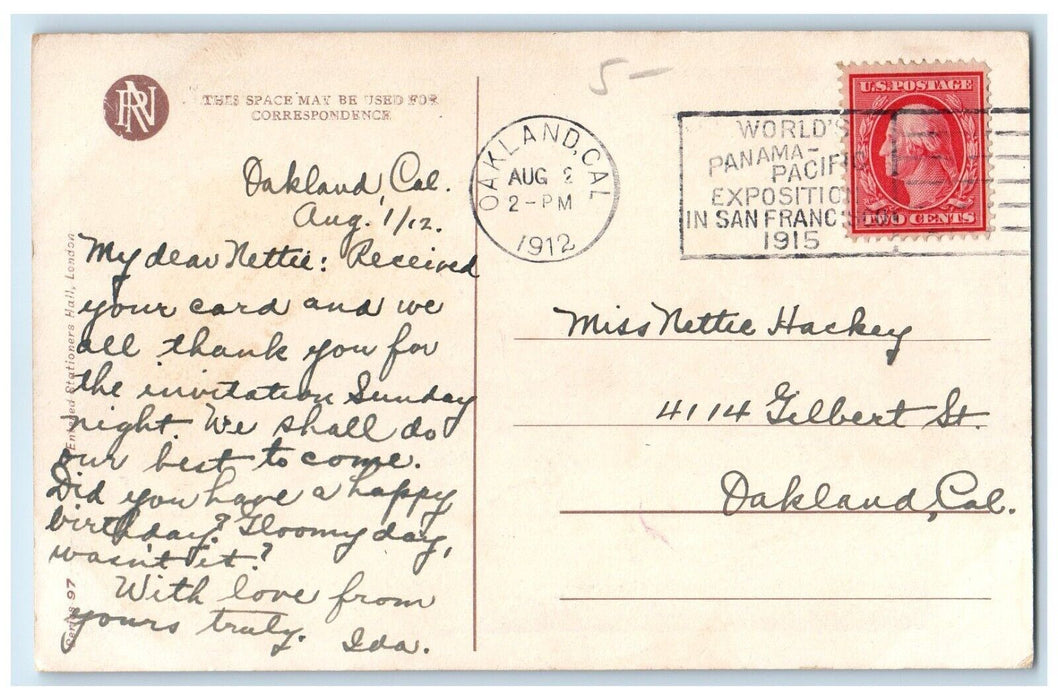 RN
THIS SPACE MAY BE USED FOR
CORRESPONDENCE
Oakland, Cal.
Aug. 1/12.
My dear Nettie: Received
your card and we
all thank you for
the invitation Sunday
night. We shall do
our best to come.
Did you have a happy
birthday? Gloomy day,
wasn't it?
With love from
yours truly. Ida.
Entered Stationers Hall, London
Series 97
5-
OAKLAND, CAL
AUG 2
2-PM
1912
WORLD'S
PANAMA-
PACIFIC
EXPOSITION
IN SAN FRANCISCO
1915
U.S. POSTAGE
TWO CENTS
Miss Nettie Hackey
4114 Gilbert St.
Oakland, Cal.